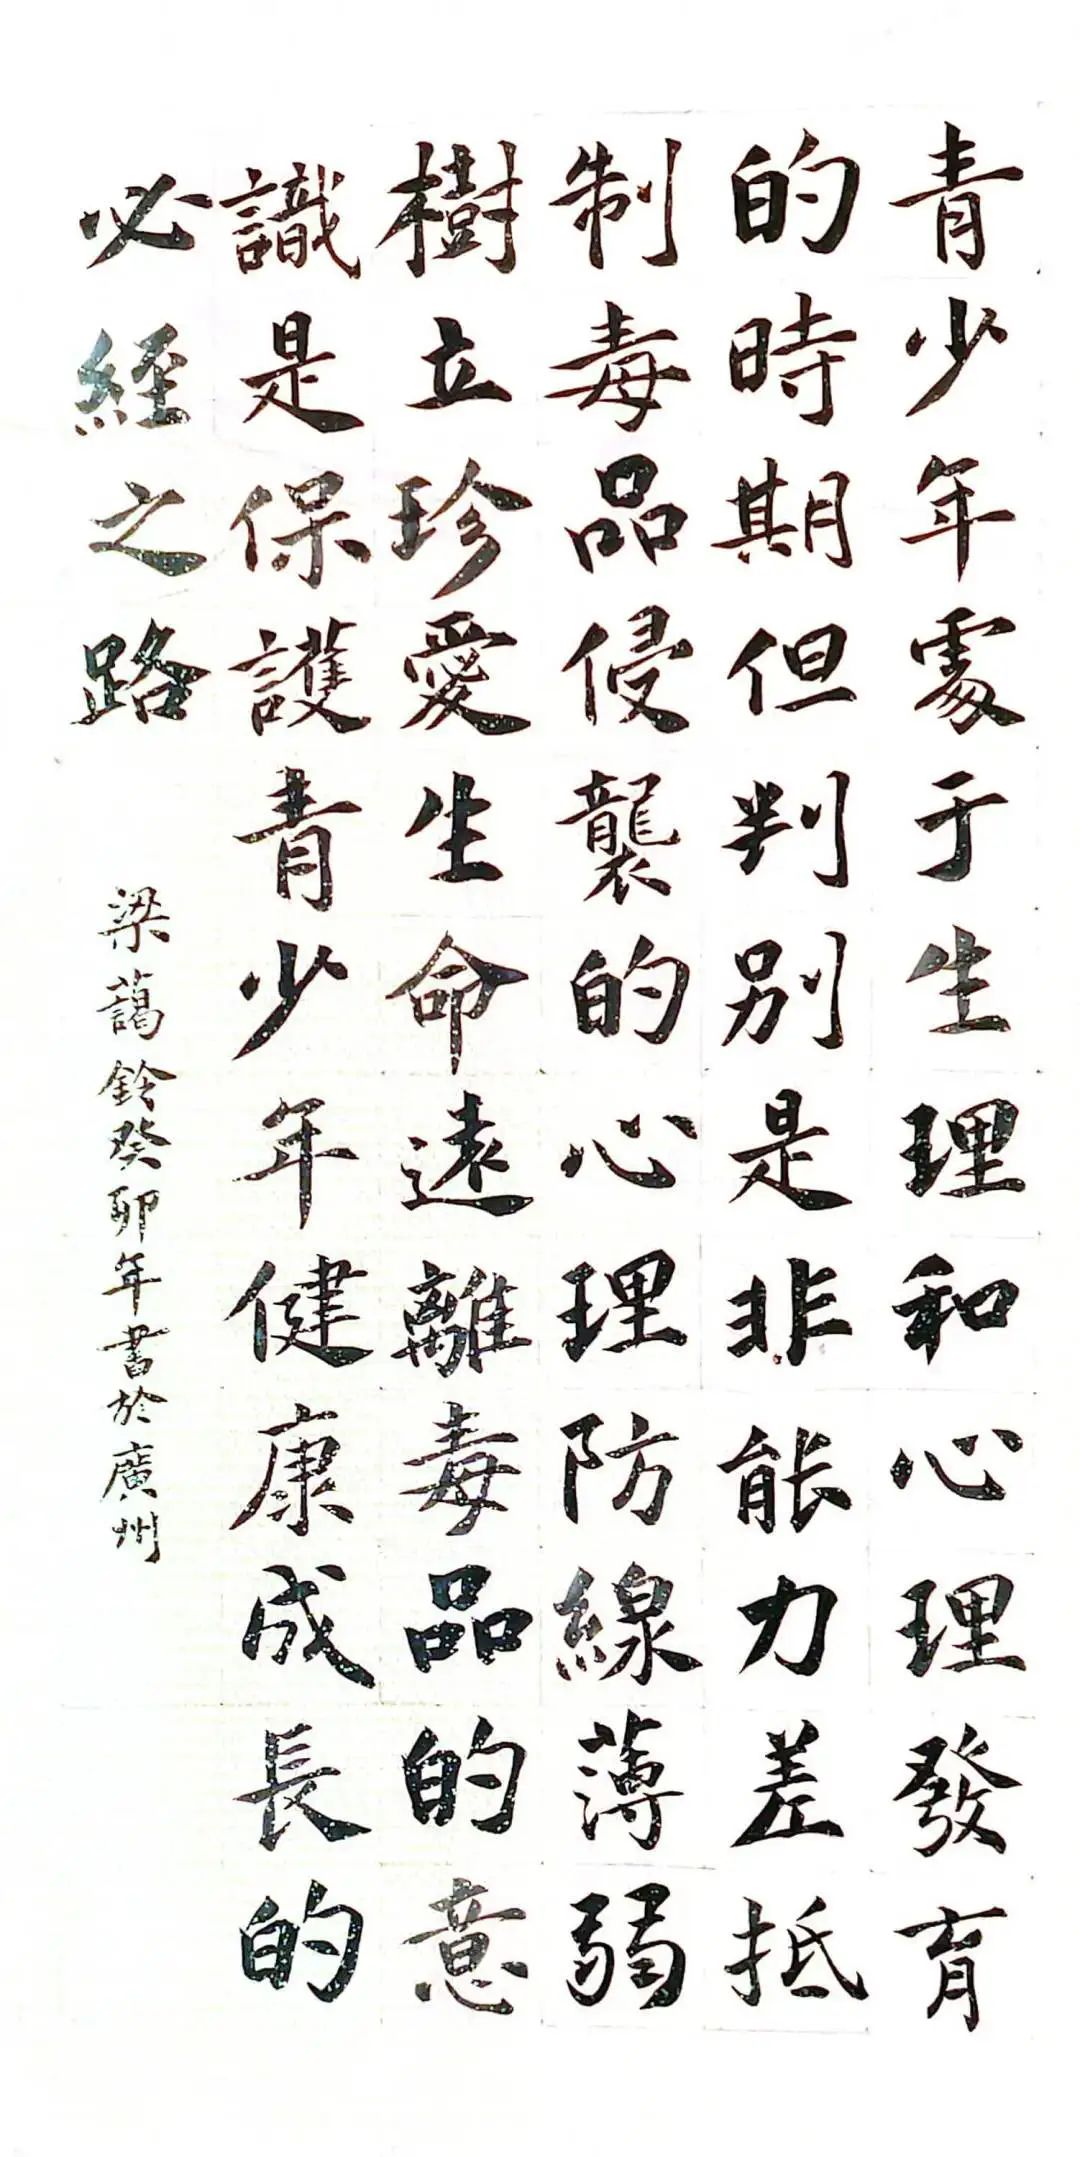 青少年處于生理和心理發育
的時期但判别是非能力差抵
制毒品侵襲的心理防線薄弱
樹立珍愛生命遠離毒品的意
識是保護青少年健康成長的
必經之路
梁藹鈴癸卯年書於廣州